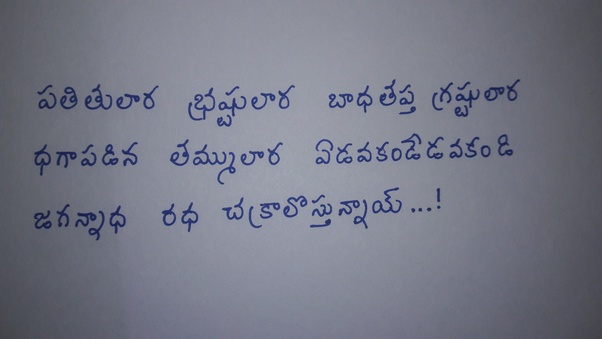 పతితులార భ్రష్టులార బాధతప్త గ్రష్టులార
ధగాపడిన తమ్ములార ఏడవకండేడవకండి
జగన్నాధ రధ చక్రాలొస్తున్నాయ్...!